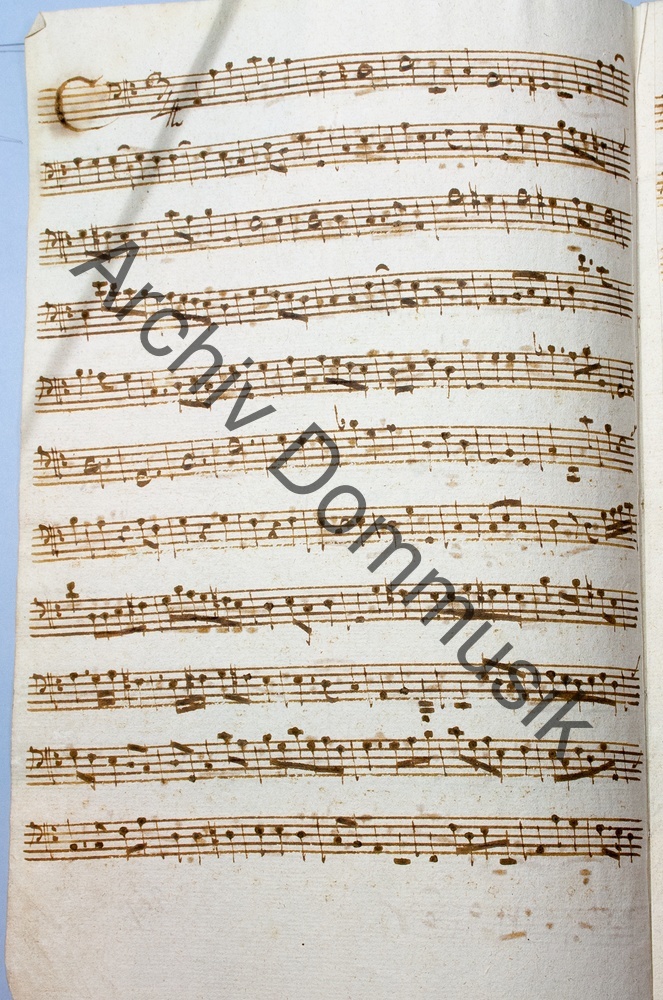 C
Archiv Dommusik